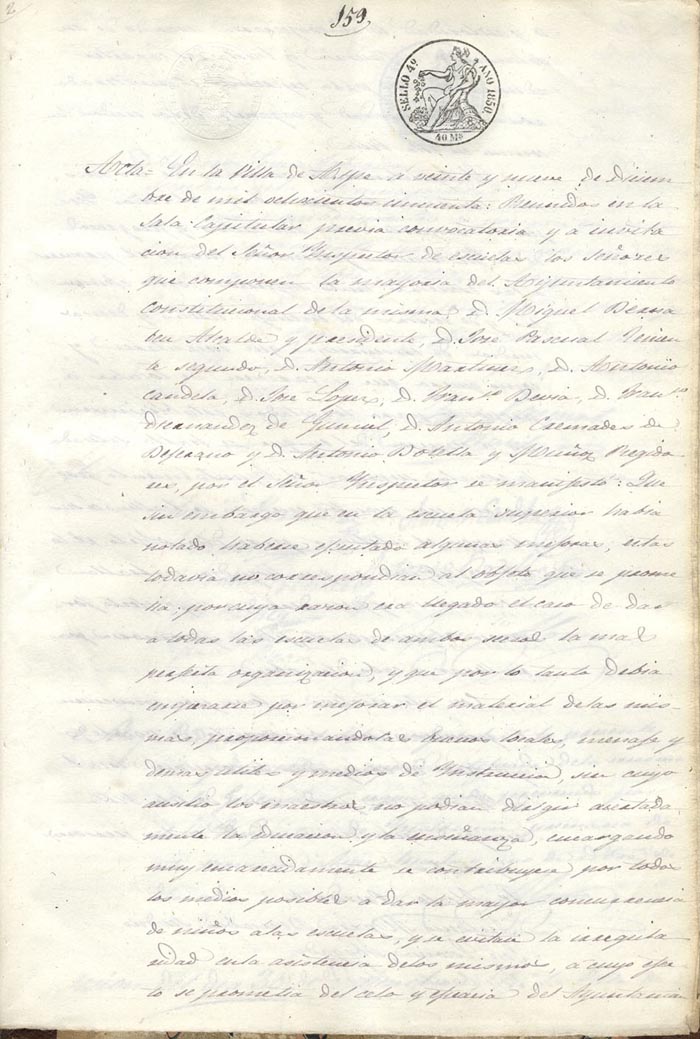 2
159
SELLO 4º AÑO 1850.
40 Ms
Acta= En la Villa de Aspe á veinte y nueve de Diciem
bre de mil ochocientos cincuenta: Reunidos en la
Sala Capitular previa convocatoria y a invita
cion del Señor Ynspector de escuelas los señores
que componen la mayoria del Ayuntamiento
constitucional de la misma, D. Miguel
Alcalde y presidente, D. José Pascual Tenien
te segundo, D. Antonio Martinez, D. Antonio
Candela, D. José Lopez, D. Franco. D. Franco.
de D. Antonio Cremades de
y D. Antonio Botella y Muñoz Regido
res, por el Señor Ynspector se manifestó: Que
sin embargo que en la escuela superior habia
notado haberse ejecutado algunas mejoras, estas
todavia no correspondian al objeto que se prome
tia: por cuya razon era llegado el caso de dar
a todas las escuelas de ambos secsos la mas
perfecta organizacion, y que por lo tanto debia
por mejorar el material de las mis-
mas, proporcionandolas buenos locales, menaje y
demas utiles y medios de Ynstruccion, sin cuyo
auxilio los maestros no podian dirigir acertada
mente la educacion y la enseñanza, encargando
muy encarecidamente se contribuyera por todos
los medios posibles a dar la mayor concurrencia
de niños a las escuelas, y se evitara la irregula
ridad en la asistencia de los mismos, a cuyo efec
to se prometia del celo y eficacia del Ayuntamien